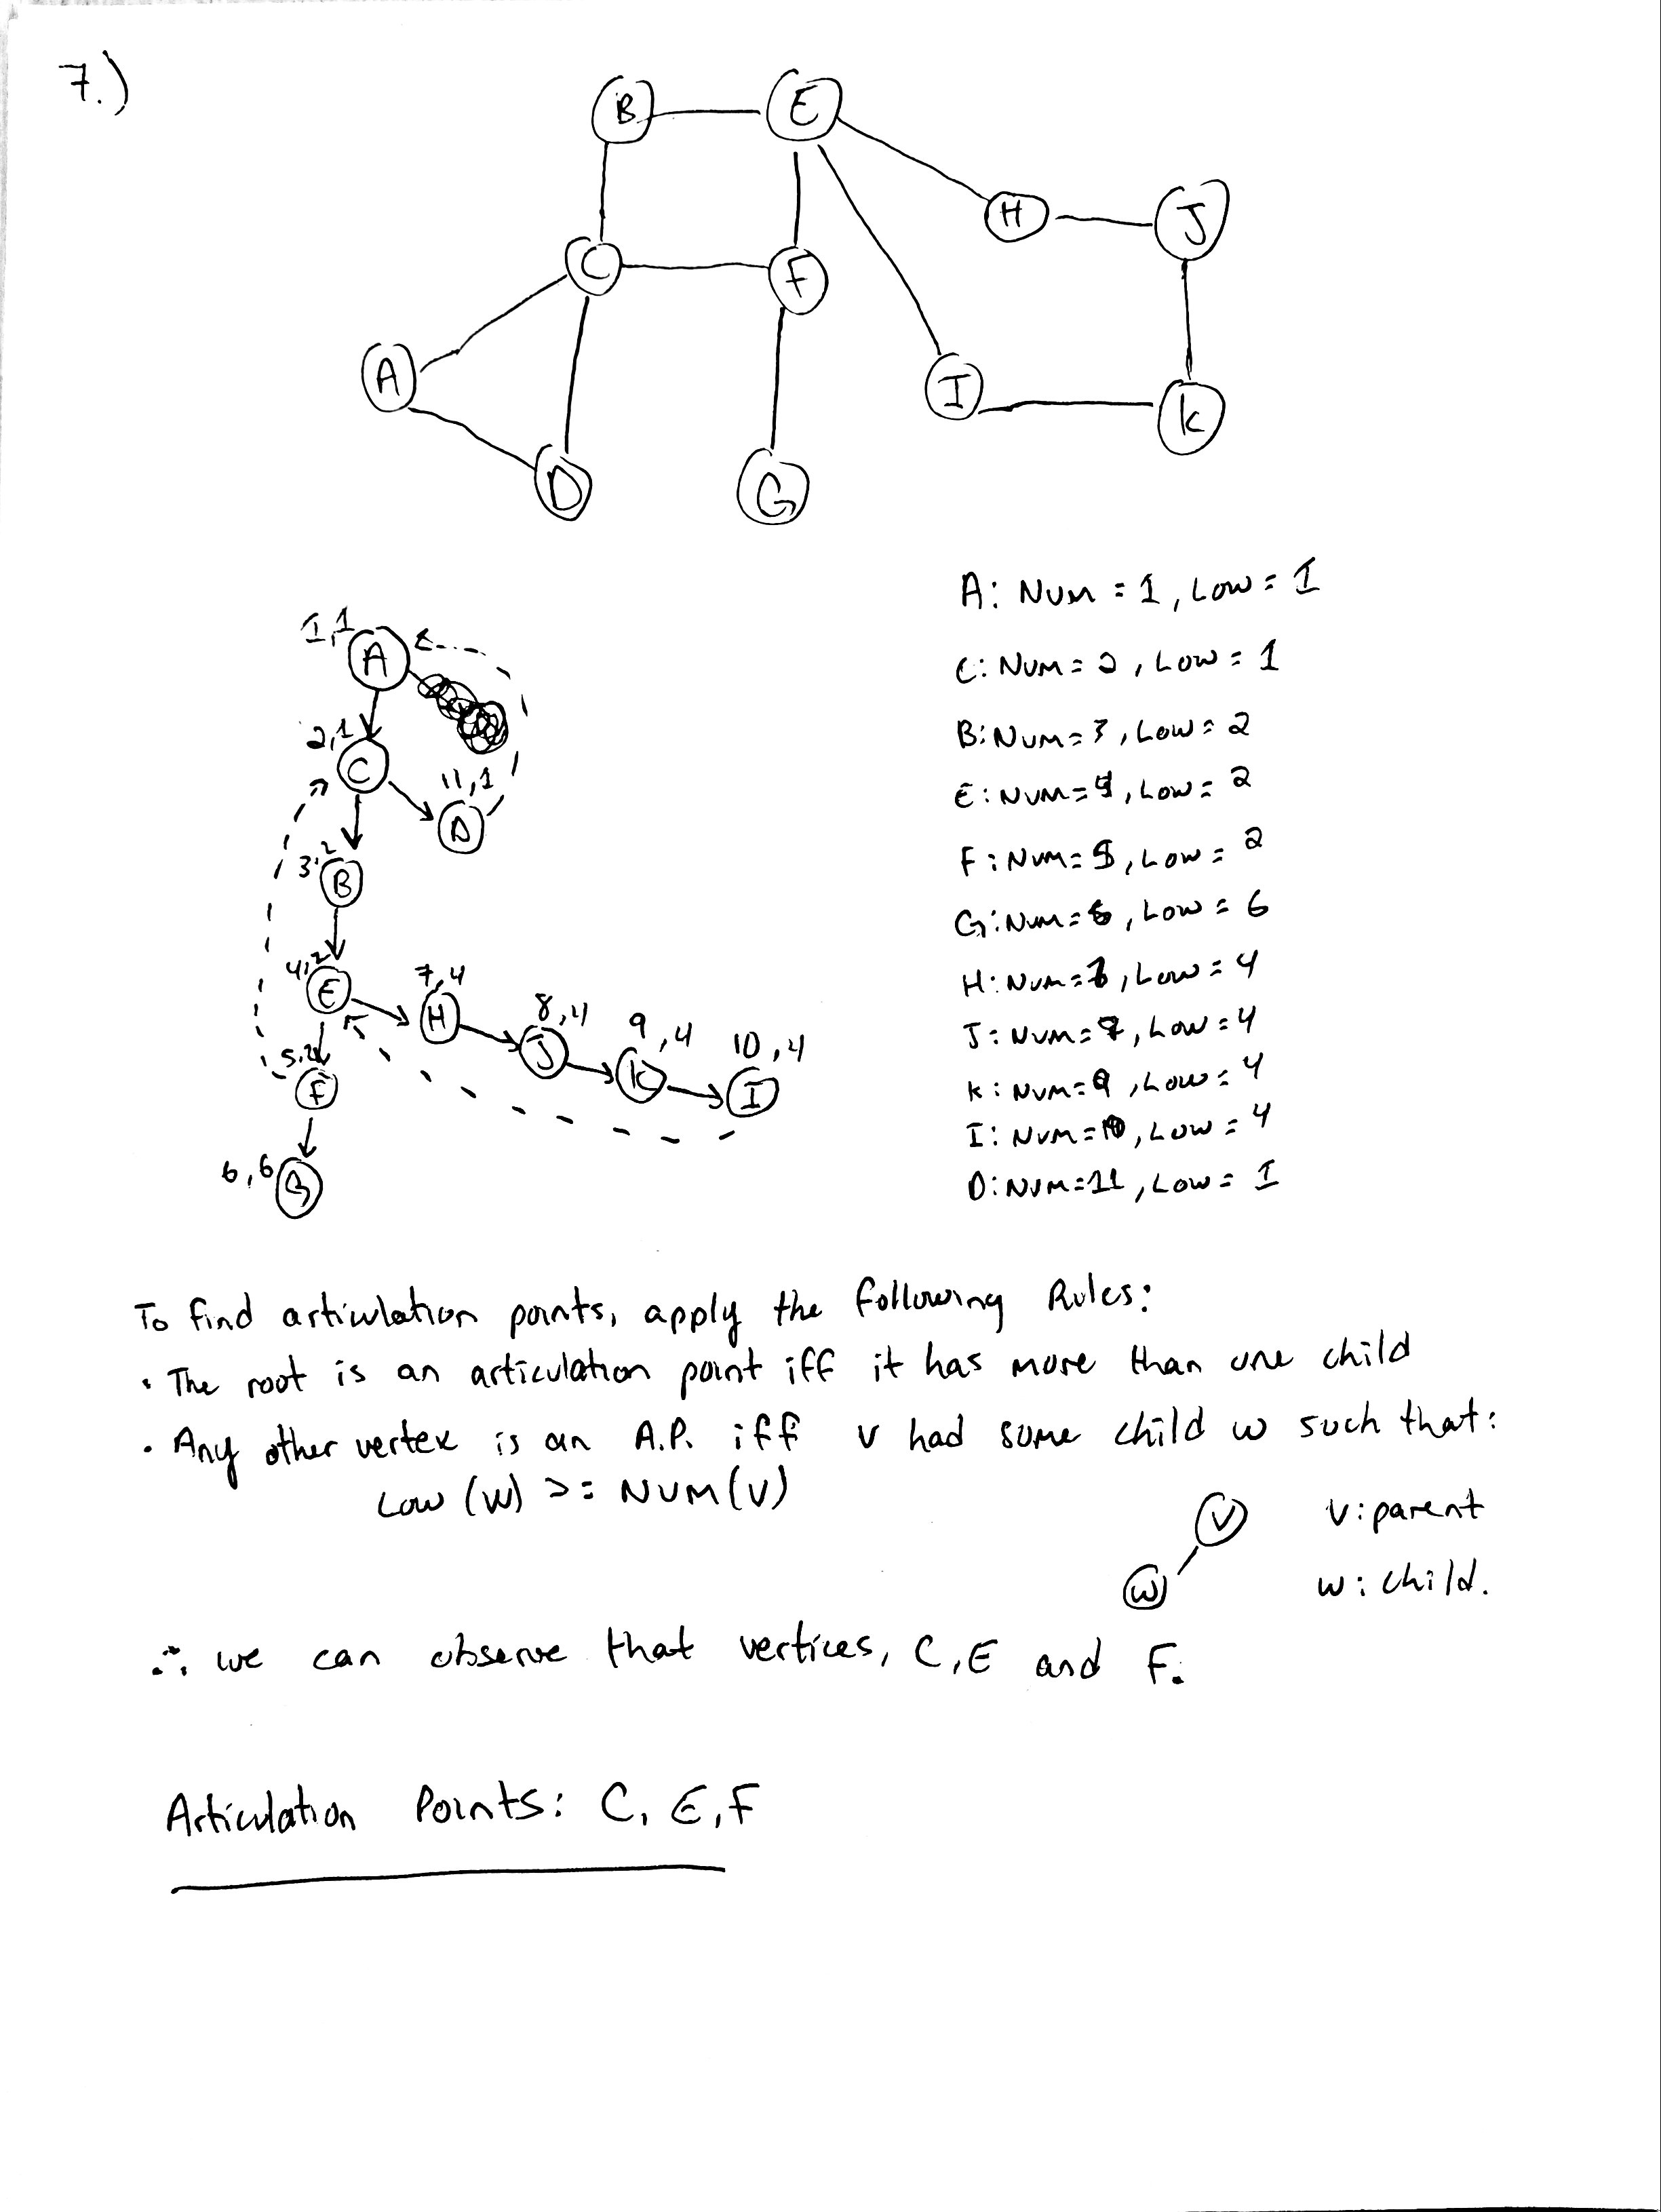 7.)
B E
H J
C F
A I K
D G
A: Num = 1, Low = 1
1,1
A
C: Num = 2, Low = 1
2,1
C
11,1
D
B: Num = 3, Low = 2
E: Num = 4, Low = 2
3,2
B
F: Num = 5, Low = 2
G: Num = 6, Low = 6
4,2
E
7,4
H
8,4
J
9,4
K
10,4
I
H: Num = 7, Low = 4
J: Num = , Low = 4
5,2
F
K: Num = 9, Low = 4
I: Num = 10, Low = 4
6,6
G
D: Num = 11, Low = 1
To find articulation points, apply the following Rules:
• The root is an articulation point iff it has more than one child
• Any other vertex is an A.P. iff v had some child w such that:
Low (w) >= Num(v)
v v: parent
w w: child.
∴ we can observe that vertices, C, E and F.
Articulation Points: C, E, F